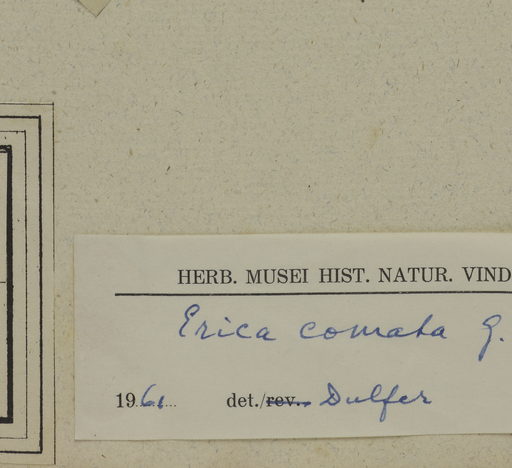 HERB. MUSEI HIST. NATUR. VIND
Erica comata G.
1961 det./rev. Dulfer